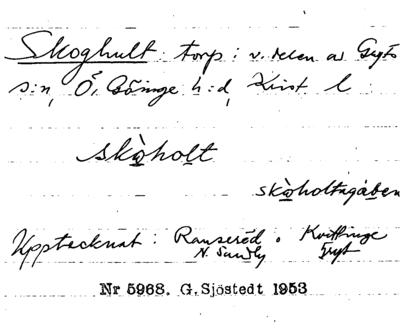 Skoghult torp i v. delen av Gryts
s:n, Ö. Göinge h:d, Krist l
skòholt
skòholtagáben
Upptecknat: Ranseröd o Kvittinge
N. Sandby Gryt
Nr 5968. G. Sjöstedt 1953